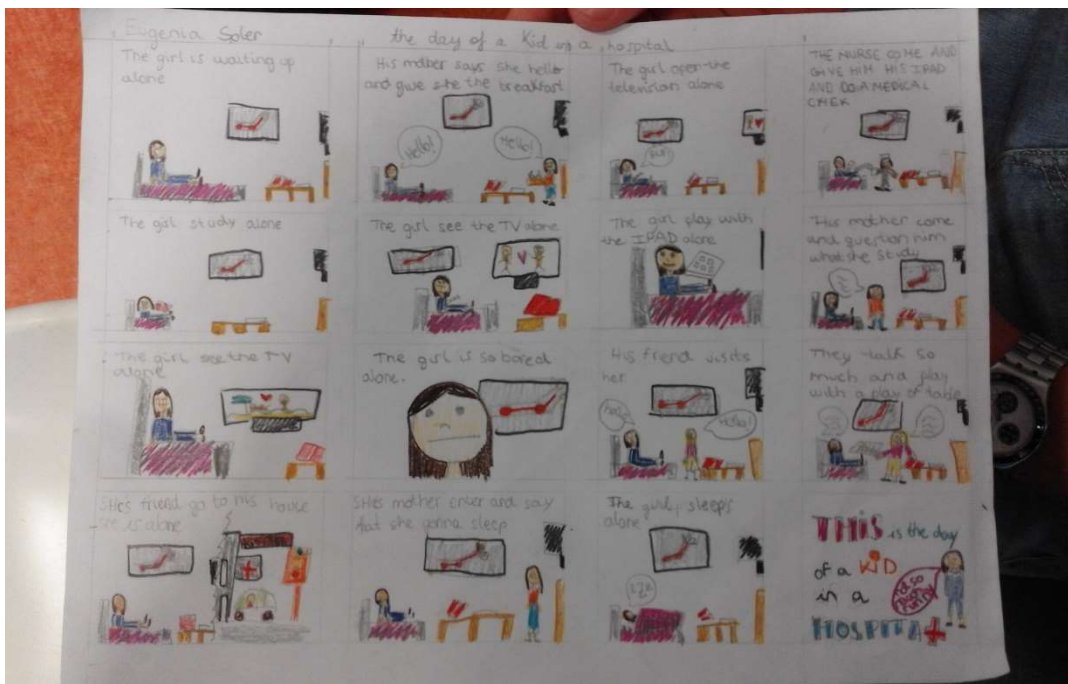 Eugenia Soler
the day of a Kid in a hospital
The girl is waiting up
alone
His mother says she hello
and give she the breakfast
Hello!
Hello!
The girl open the
television alone
THE NURSE COME AND
GIVE HIM HIS IPAD
AND DO A MEDICAL
CHEK
The girl study alone
The girl see the TV alone
The girl play with
the IPAD alone
His mother come
and question him
what she study
The girl see the TV
alone
The girl is so bored
alone.
His friend visits
her
Hello!
They talk so
much and play
with a play of table
SHe's friend go to his house
she is alone
SHe's mother enter and say
that she gonna sleep
The girl sleeps
alone
ZZZ
THiS is the day
of a KiD
in a
HOSPITA